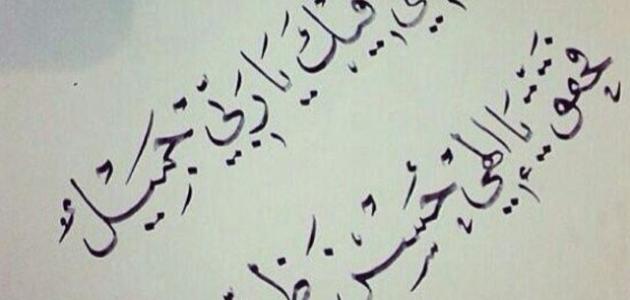 فِيكَ يَا رَبِّي جَمِيلٌ
فحقق يَا إِلهي حُسْنَ